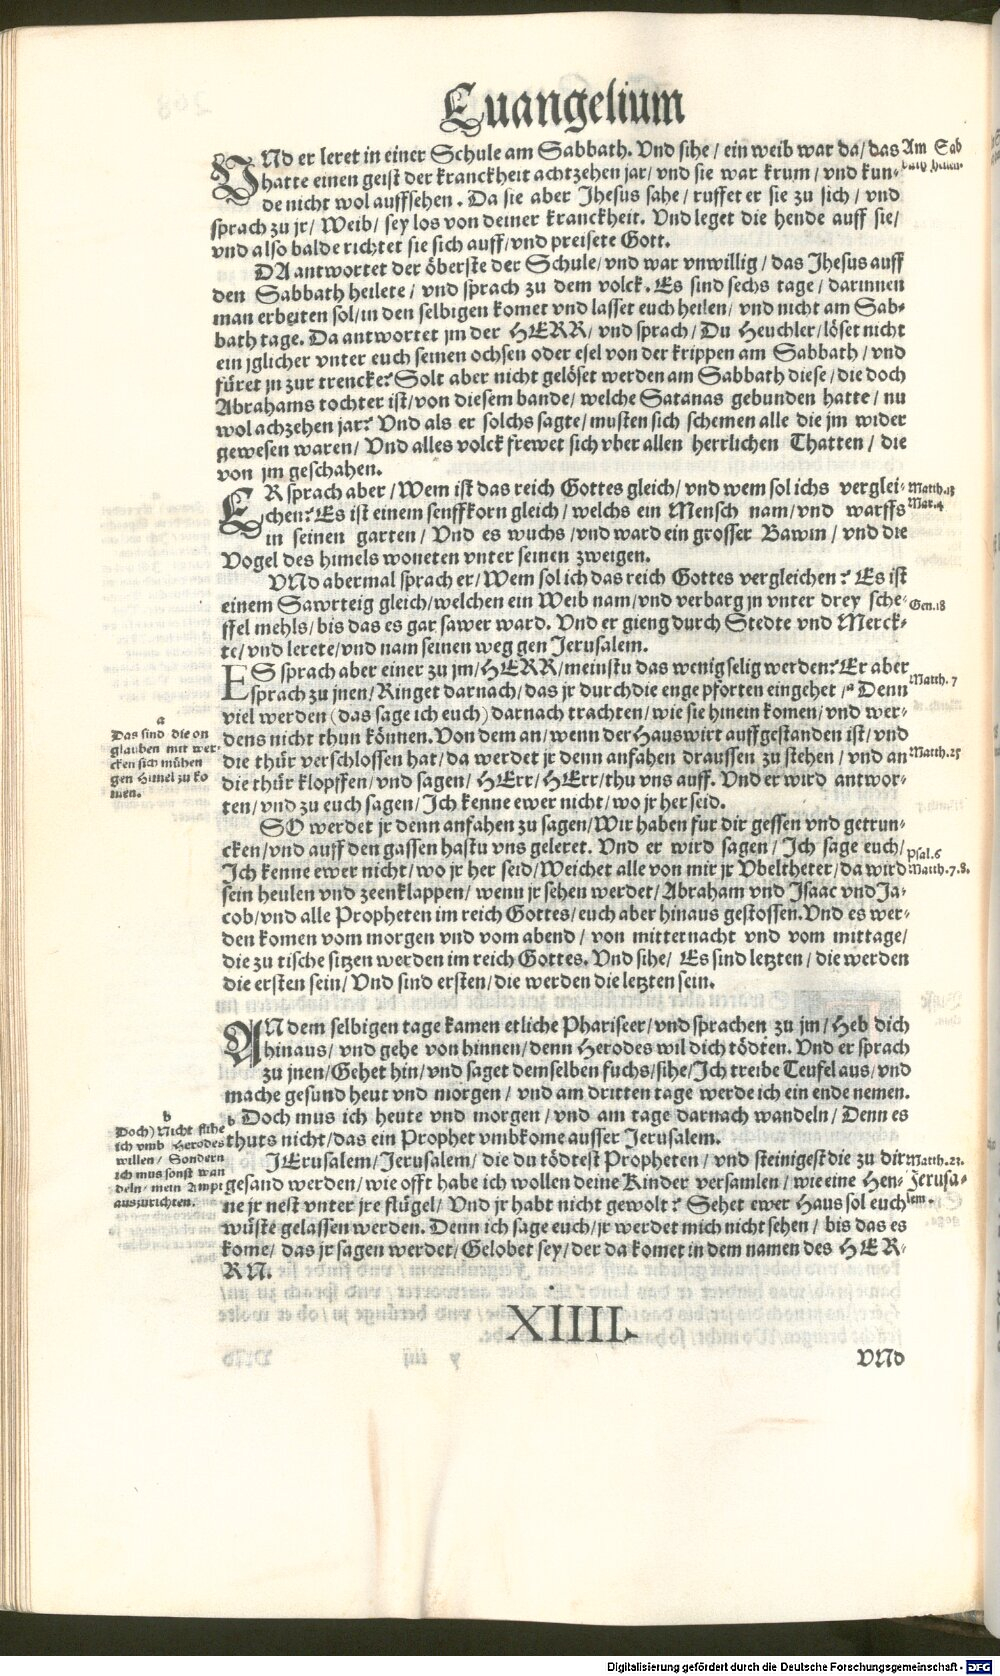 Euangelium
VNd er leret in einer Schule am Sabbath. Vnd sihe / ein weib war da / das
hatte einen geist der kranckheit achtzehen jar / vnd sie war krum / vnd kun-
de nicht wol auffsehen . Da sie aber Jhesus sahe / ruffet er sie zu sich / vnd
sprach zu jr / Weib / sey los von deiner kranckheit. Vnd leget die hende auff sie /
vnd also balde richtet sie sich auff / vnd preisete Gott.
Am Sab
DA antwortet der öberste der Schule / vnd war vnwillig / das Jhesus auff
den Sabbath heilete / vnd sprach zu dem volck. Es sind sechs tage / darinnen
man erbeiten sol / in den selbigen komet vnd lasset euch heilen / vnd nicht am Sab-
bath tage. Da antwortet jm der HERR / vnd sprach / Du Heuchler / löset nicht
ein jglicher vnter euch seinen ochsen oder esel von der krippen am Sabbath / vnd
füret jn zur trencke? Solt aber nicht gelöset werden am Sabbath diese / die doch
Abrahams tochter ist / von diesem bande / welche Satanas gebunden hatte / nu
wol achzehen jar? Vnd als er solchs sagte / musten sich schemen alle die jm wider
gewesen waren / Vnd alles volck frewet sich vber allen herrlichen Thatten / die
von jm geschahen.
ER sprach aber / Wem ist das reich Gottes gleich / vnd wem sol ichs verglei-
chen? Es ist einem senffkorn gleich / welchs ein Mensch nam / vnd warffs
in seinen garten / Vnd es wuchs / vnd ward ein grosser Bawm / vnd die
Vogel des himels woneten vnter seinen zweigen.
Matth. 13
Mar. 4
VNd abermal sprach er / Wem sol ich das reich Gottes vergleichen? Es ist
einem Sawrteig gleich / welchen ein Weib nam / vnd verbarg jn vnter drey sche-
ffel mehls / bis das es gar sawer ward. Vnd er gieng durch Stedte vnd Merck-
te / vnd lerete / vnd nam seinen weg gen Jerusalem.
Gen. 18
ES sprach aber einer zu jm / HERR / meinstu das wenig selig werden? Er aber
sprach zu jnen / Ringet darnach / das jr durch die enge pforten eingehet / a Denn
viel werden (das sage ich euch) darnach trachten / wie sie hinein komen / vnd wer-
dens nicht thun können. Von dem an / wenn der Hauswirt auffgestanden ist / vnd
die thür verschlossen hat / da werdet jr denn anfahen draussen zu stehen / vnd an
die thür klopffen / vnd sagen / HErr / HErr / thu vns auff. Vnd er wird antwor-
ten / vnd zu euch sagen / Ich kenne ewer nicht / wo jr her seid.
Matth. 7
Matth. 25
a
Das sind die on
glauben mit wer-
cken sich mühen
gen Himel zu ko
men.
SO werdet jr denn anfahen zu sagen / Wir haben fur dir gessen vnd getrun-
cken / vnd auff den gassen hastu vns geleret. Vnd er wird sagen / Ich sage euch /
Ich kenne ewer nicht / wo jr her seid / Weichet alle von mir jr Vbeltheter / da wird
sein heulen vnd zeenklappen / wenn jr sehen werdet / Abraham vnd Isaac vnd Ja-
cob / vnd alle Propheten im reich Gottes / euch aber hinaus gestossen. Vnd es wer-
den komen vom morgen vnd vom abend / von mitternacht vnd vom mittage /
die zu tische sitzen werden im reich Gottes. Vnd sihe / Es sind letzten / die werden
die ersten sein / Vnd sind ersten / die werden die letzten sein.
Psal. 6
Matth. 7. 8.
AN dem selbigen tage kamen etliche Phariseer / vnd sprachen zu jm / Heb dich
hinaus / vnd gehe von hinnen / denn Herodes wil dich tödten. Vnd er sprach
zu jnen / Gehet hin / vnd saget demselben fuchs / sihe / Ich treibe Teufel aus / vnd
mache gesund heut vnd morgen / vnd am dritten tage werde ich ein ende nemen.
b Doch mus ich heute vnd morgen / vnd am tage darnach wandeln / Denn es
thuts nicht / das ein Prophet vmbkome ausser Jerusalem.
b
Doch) Nicht flihe
ich vmb Herodes
willen / Sondern
ich mus sonst wan
deln / mein Ampt
auszurichten.
JErusalem / Jerusalem / die du tödtest Propheten / vnd steinigest die zu dir
gesand werden / wie offt habe ich wollen deine Kinder versamlen / wie eine Hen-
ne jr nest vnter jre flügel / Vnd jr habt nicht gewolt? Sehet ewer Haus sol euch
wüste gelassen werden. Denn ich sage euch / jr werdet mich nicht sehen / bis das es
kome / das jr sagen werdet / Gelobet sey / der da komet in dem namen des HER-
RN.
Matth. 23.
Jerusa-
lem.
XIIII.
VNd
Digitalisierung gefördert durch die Deutsche Forschungsgemeinschaft - DFG